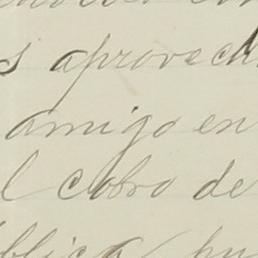 s aprovech
amigo en
l cobro de
ública pu